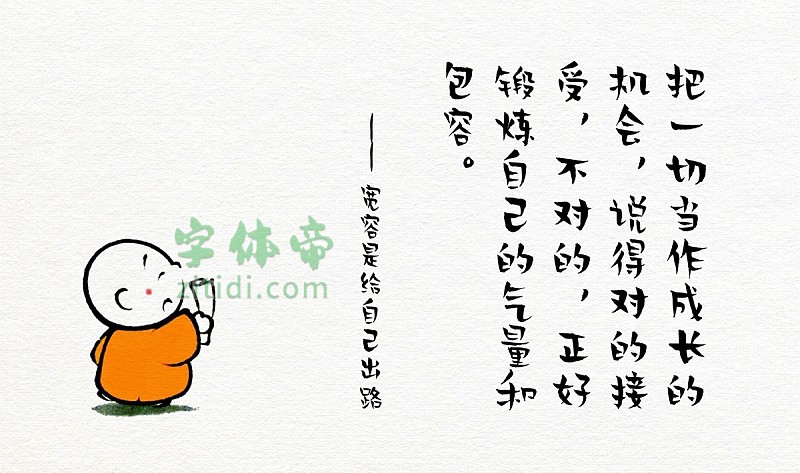 把一切当作成长的
机会，说得对的接
受，不对的，正好
锻炼自己的气量和
包容。
——宽容是给自己出路
字体帝
zitidi.com